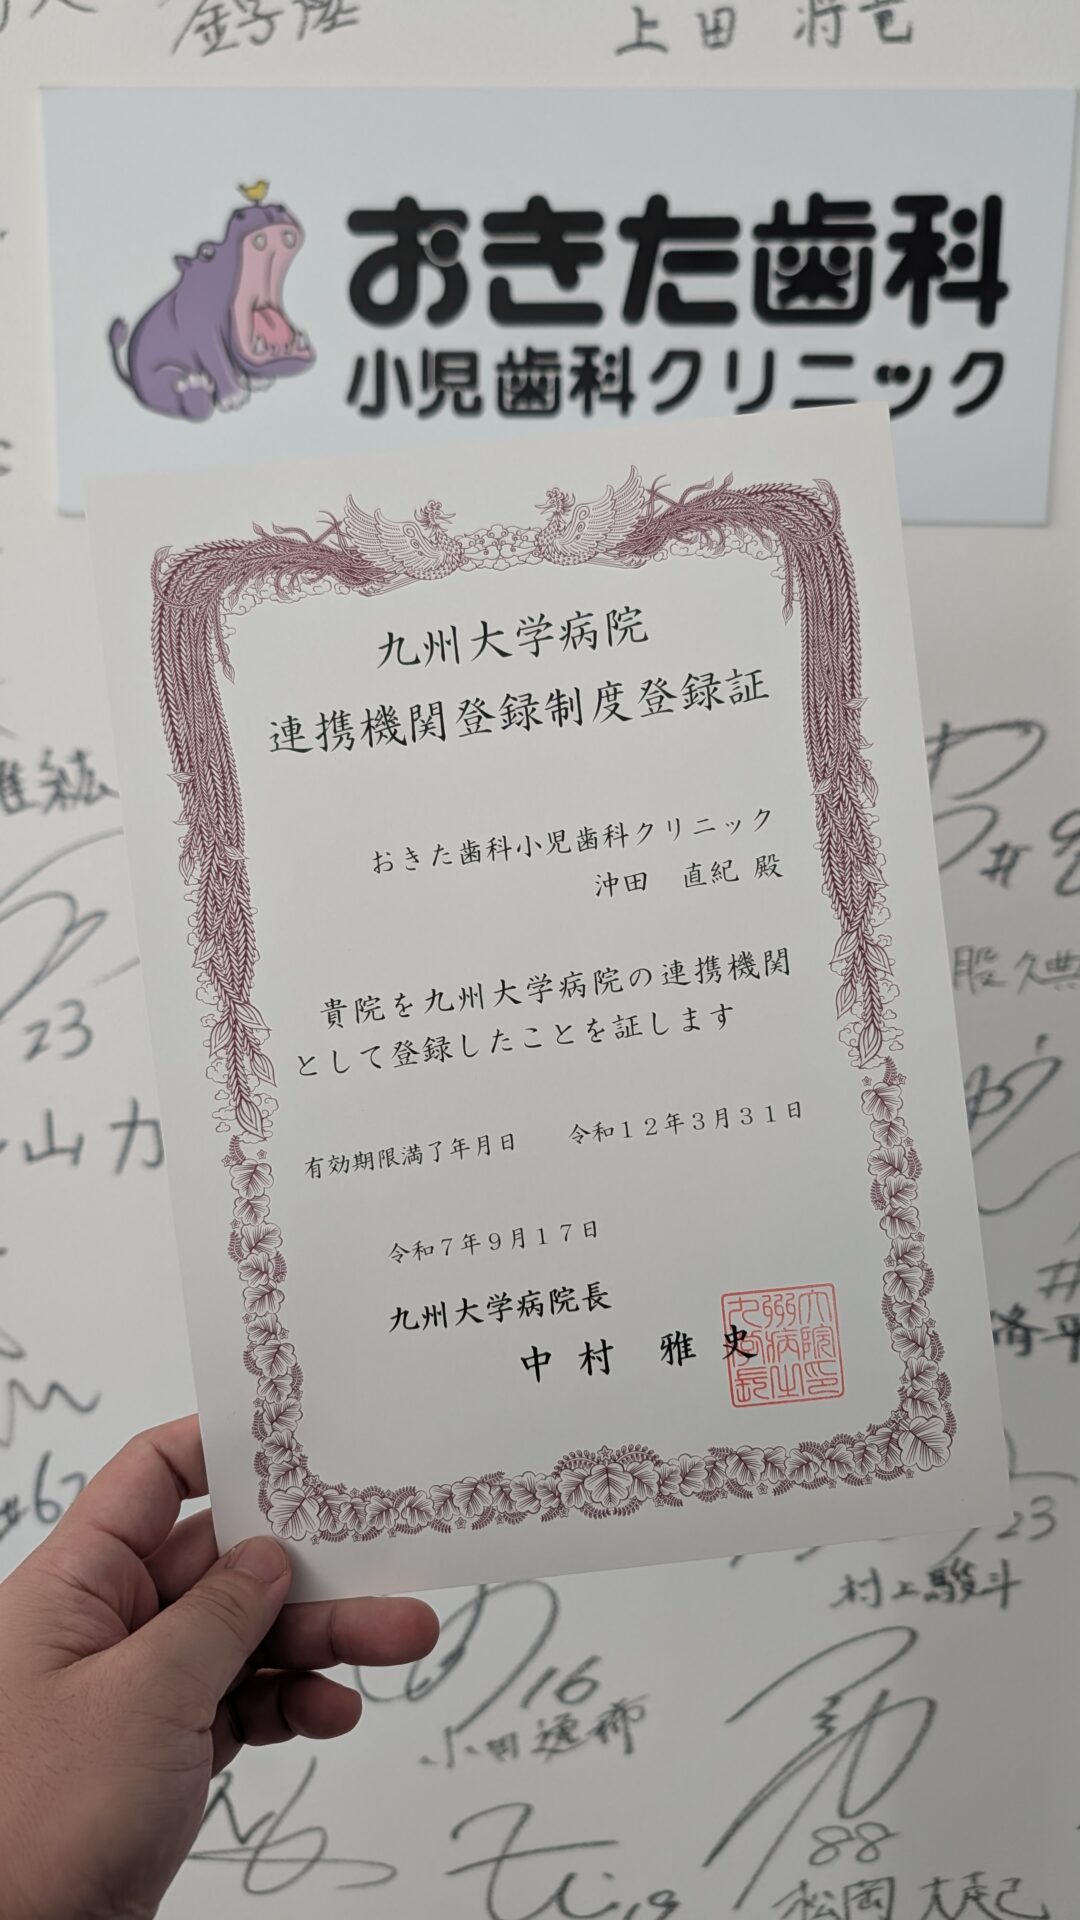 金子
上田 将
おきた歯科
小児歯科クリニック
九州大学病院
連携機関登録制度登録証
おきた歯科小児歯科クリニック
沖田 直紀 殿
貴院を九州大学病院の連携機関
として登録したことを証します
有効期限満了年月日 令和12年3月31日
令和7年9月17日
九州大学病院長
中村 雅史
23
山力
#62
23
村上駿斗
16
88
松岡